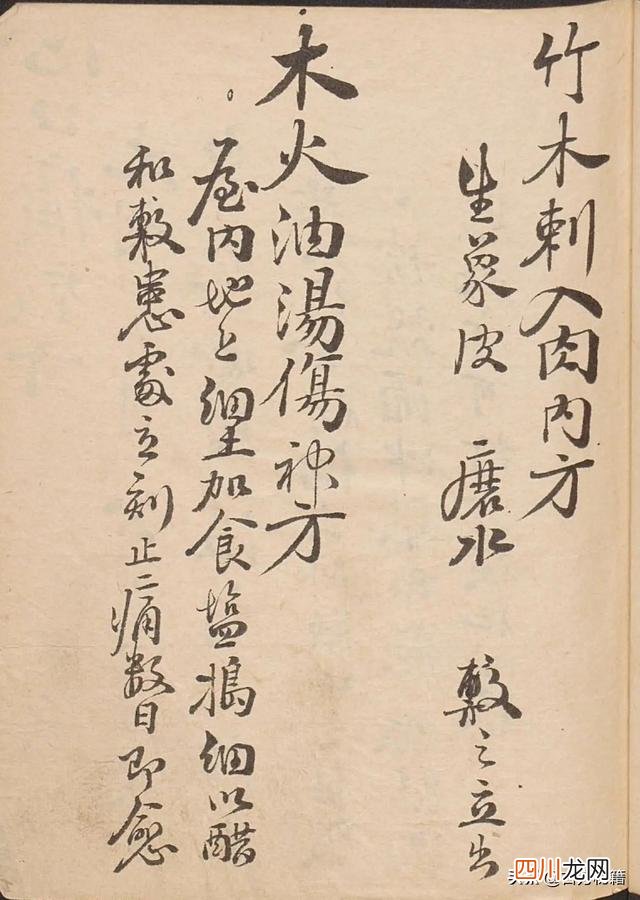 竹木刺入肉内方
生象皮 磨水 敷之立出
木火油湯傷神方
屋内地上細土加食塩搗細以醋
和敷患處立刻止痛数日即愈
四川龙网